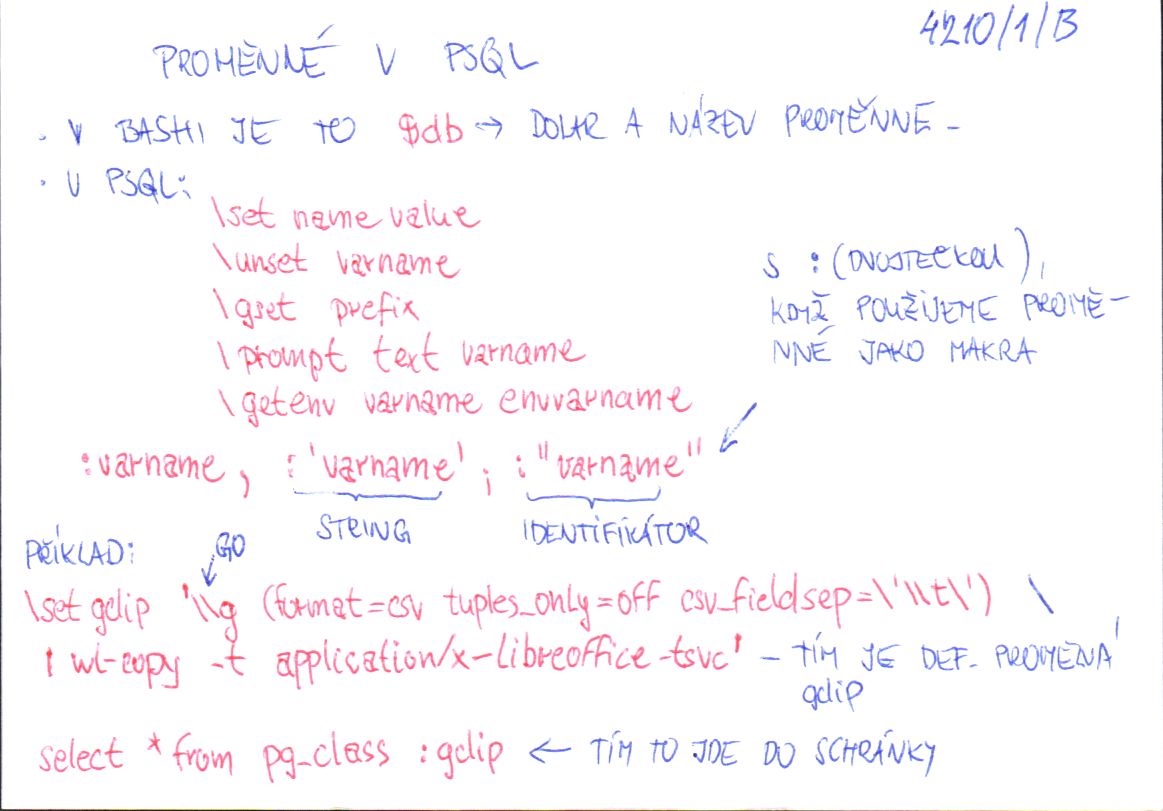 4210/1/B
PROMĚNNÉ V PSQL
· V BASHI JE TO $db → DOLAR A NÁZEV PROMĚNNÉ -
· V PSQL:
\set name value
\unset varname
\gset prefix
\prompt text varname
\getenv varname envvarname
S : (DVOJTEČKOU),
KDYŽ POUŽIJEME PROMĚ-
NNÉ JAKO MAKRA
:varname, :'varname', :"varname"
STRING IDENTIFIKÁTOR
PŘÍKLAD: GO
\set gclip '\\g (format=csv tuples_only=off csv_fieldsep=\'\\t\') \
| wl-copy -t application/x-libreoffice-tsvc' - TÍM JE DEF. PROMĚNÁ
gclip
select * from pg_class :gclip ← TÍM TO JDE DO SCHRÁNKY